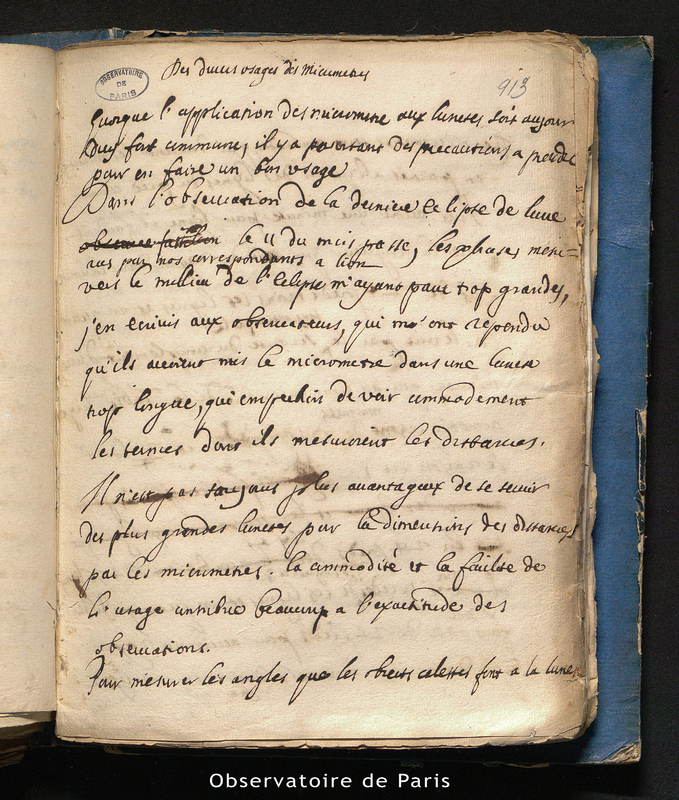 Des divers usages des Micrometres
913
OBSERVATOIRE
DE
PARIS
Quoique l'application des micrometre aux lunetes soit aujour
duy fort commune, il y a pourtant des precautions a prendre
pour en faire un bon usage
Dans l'observation de la derniere eclipse de lune
observée le 11 du mois passe, les phases mesu=
rees par nos correspondants a lion
vers le milieu de l'Eclipse m'ayant paru trop grandes,
j'en ecrivis aux observateurs, qui m'ont repondu
qu'ils avoient mis le micrometre dans une lunete
trop longue, qui empechoit de voir commodement
les termes dont ils mesuroient les distances.
Il n'est pas toujours plus avantageux de se servir
des plus grandes lunetes pour la dimensions des distances
par les micrometres. la commodité et la facilité de
l'usage contribue beaucoup a l'exactitude des
observations.
Pour mesurer les angles que les obiets celestes font a la lunete
Observatoire de Paris